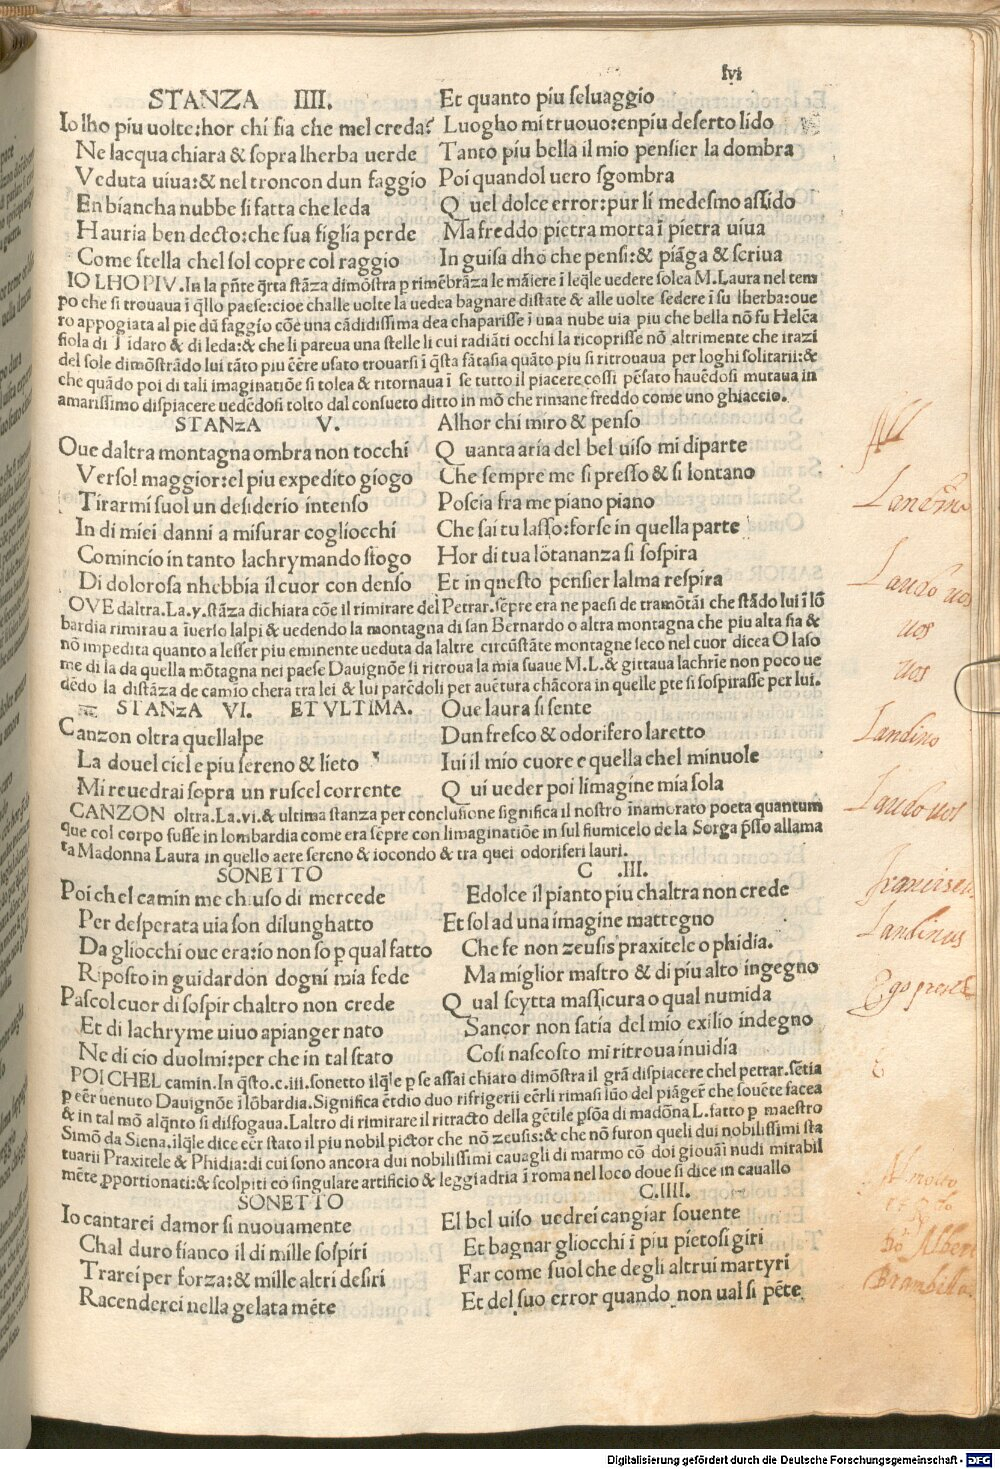 lvi
STANZA IIII.
Io lho piu uolte:hor chi fia che mel creda?
Ne lacqua chiara & sopra lherba uerde
Veduta uiua:& nel troncon dun faggio
En biancha nubbe si fatta che leda
Hauria ben decto:che sua figlia perde
Come stella chel sol copre col raggio
Et quanto piu seluaggio
Luogho mi truouo:enpiu deserto lido
Tanto piu bella il mio pensier la dombra
Poi quandol uero sgombra
Quel dolce error:pur li medesmo assido
Ma freddo pietra morta ī pietra uiua
In guisa dho che pensi:& piāga & scriua
IO LHO PIV.In la pn̄te q̄rta stāza dimōstra p rimēbrāza le māiere ī leq̄le uedere solea M.Laura nel tem
po che si trouaua ī q̄llo paese:cioe challe uolte la uedea bagnare distate & alle uolte sedere ī su lherba:oue
ro appogiata al pie dū faggio cōe una cādidissima dea chaparisse ī una nube uia piu che bella nō fu Helēa
fiola di Tidaro & di leda:& che li pareua una stelle li cui radiāti occhi la ricoprisse nō altrimente che irazi
del sole dimōstrādo lui tāto piu eēre usato trouarsi ī q̄sta fātasia quāto piu si ritrouaua per loghi solitarii:&
che quādo poi di tali imaginatiōe si tolea & ritornaua ī se tutto il piacere cossi pēsato hauēdosi mutaua in
amarissimo dispiacere uedēdosi tolto dal consueto ditto in mō che rimane freddo come uno ghiaccio.
STANzA V.
Oue daltra montagna ombra non tocchi
Versol maggior:el piu expedito giogo
Tirarmi suol un desiderio intenso
In di miei danni a misurar cogliocchi
Comincio in tanto lachrymando sfogo
Di dolorosa nhebbia il cuor con denso
Alhor chi miro & penso
Quanta aria del bel uiso mi diparte
Che sempre me si presso & si lontano
Poscia fra me piano piano
Che sai tu lasso:forse in quella parte
Hor di tua lōtananza si sospira
Et in questo pensier lalma respira
OVE daltra.La.y.stāza dichiara cōe il rimirare del Petrar.sēpre era ne paesi de tramōtāi che stādo lui ī lō
bardia rimiraua īuerso lalpi & uedendo la montagna di san Bernardo o altra montagna che piu alta sia &
nō impedita quanto a lesser piu eminente ueduta da laltre circūstāte montagne seco nel cuor dicea O laso
me di la da quella mōtagna nei paese Dauignōe si ritroua la mia suaue M.L.& gittaua lachrīe non poco ue
dēdo la distāza de camio chera tra lei & lui parēdoli per auētura chācora in quelle pte si sospirasse per lui.
STANzA VI. ET VLTIMA.
Canzon oltra quellalpe
La douel ciel e piu sereno & lieto
Mi reuedrai sopra un ruscel corrente
Oue laura si sente
Dun fresco & odorifero laretto
Iui il mio cuore e quella chel minuole
Qui ueder poi limagine mia sola
CANZON oltra.La.vi.& ultima stanza per conclusione significa il nostro inamorato poeta quantum
que col corpo fusse in lombardia come era sēpre con limaginatiōe in sul fiumicelo de la Sorga p̄sso allama
ta Madonna Laura in quello aere sereno & iocondo & tra quei odoriferi lauri.
SONETTO C .III.
Poi chel camin me chiuso di mercede
Per desperata uia son dilunghatto
Da gliocchi oue era:io non so p qual fatto
Riposto in guidardon dogni mia fede
Pascol cuor di sospir chaltro non crede
Et di lachryme uiuo apianger nato
Ne di cio duolmi:per che in tal stato
Edolce il pianto piu chaltra non crede
Et sol ad una imagine mattegno
Che fe non zeusis praxitele o phidia.
Ma miglior mastro & di piu alto ingegno
Qual scytta massicura o qual numida
Sancor non satia del mio exilio indegno
Cosi nascosto mi ritroua inuidia
POI CHEL camin.In q̄sto.c.iii.sonetto ilq̄le p se assai chiaro dimōstra il grā dispiacere chel petrar.sētia
p eēr uenuto Dauignōe ī lōbardia.Significa ētdio duo rifrigerii eērli rimasi lūo del piāgeř che souēte facea
& in tal mō alq̄nto si disfogaua.Laltro di rimirare il ritracto della gētile psōa di madōna L.fatto p maestro
Simō da Siena.ilq̄le dice eēr stato il piu nobil pictor che nō zeusis:& che nō furon queli dui nobilissimi sta
tuarii Praxitele & Phidia:di cui sono ancora dui nobilissimi cauagli di marmo cō doi giouāi nudi mirabil
mēte pportionati:& scolpiti cō singulare artificio & leggiadria ī roma nel loco doue si dice in cauallo
SONETTO C.IIII.
Io cantarei damor si nuouamente
Chal duro fianco il di mille sospiri
Trarei per forza:& mille altri desiri
Racenderei nella gelata mēte
El bel uiso uedrei cangiar souente
Et bagnar gliocchi ī piu pietosi giri
Far come suol che degli altrui martyri
Et del suo error quando non ual si pēte
Landino
Laudo uos
uos
uos
Landino
Laudo uos
Francisc
Landinus
Ego pres
Al molto
Albert
Brambilla
Digitalisierung gefördert durch die Deutsche Forschungsgemeinschaft - DFG